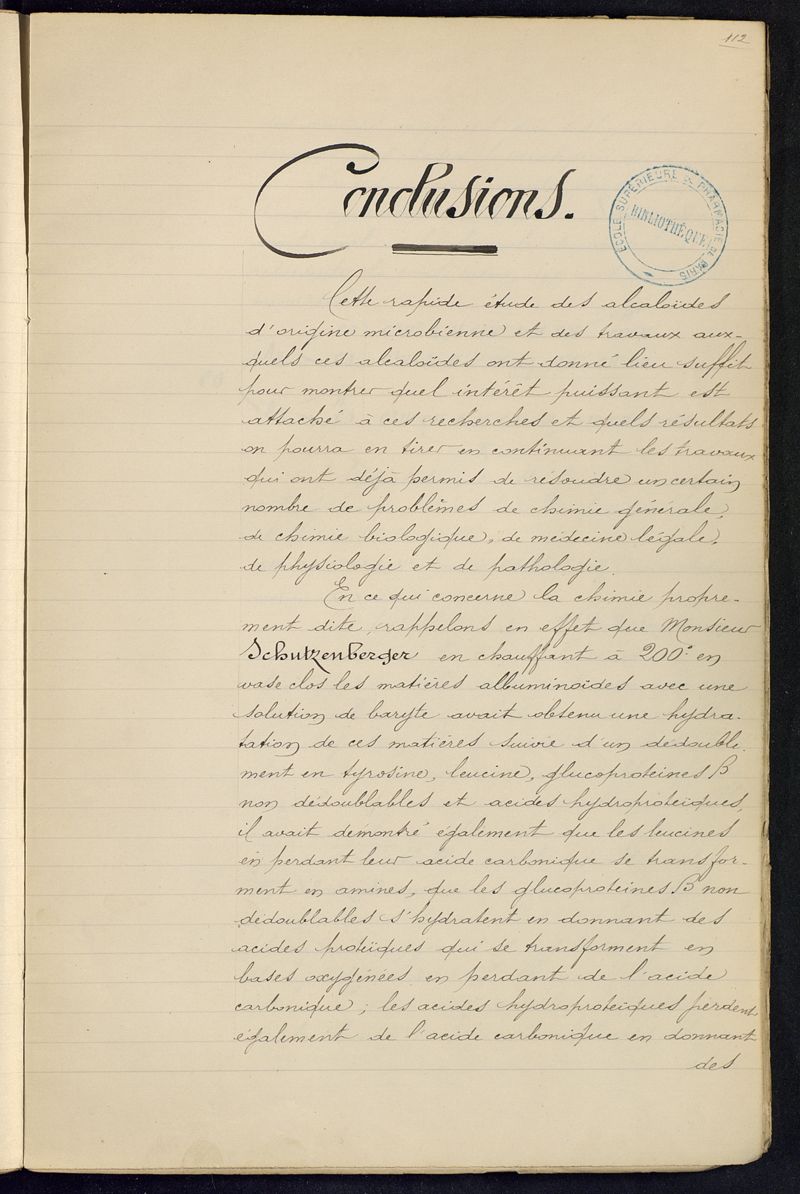 112
Conclusions.
ÉCOLE SUPÉRIEURE DE PHARMACIE DE PARIS
BIBLIOTHÈQUE
Cette rapide étude des alcaloïdes
d'origine microbienne et des travaux aux-
quels ces alcaloïdes ont donné lieu suffit
pour montrer quel intérêt puissant est
attaché à ces recherches et quels résultats
on pourra en tirer en continuant les travaux
qui ont déjà permis de résoudre un certain
nombre de problèmes de chimie générale,
de chimie biologique, de médecine légale,
de physiologie et de pathologie.
En ce qui concerne la chimie propre-
ment dite, rappelons en effet que Monsieur
Schutzenberger en chauffant à 200° en
vase clos les matières albuminoïdes avec une
solution de baryte avait obtenu une hydra-
tation de ces matières suivie d'un dédouble-
ment en tyrosine, leucine, glucoproteines β
non dédoublables et acides hydroproteïques,
il avait démontré également que les leucines
en perdant leur acide carbonique se transfor-
ment en amines, que les glucoproteines β non
dédoublables s'hydratent en donnant des
acides proteïques qui se transforment en
bases oxygénées en perdant de l'acide
carbonique; les acides hydroproteïques perdent
également de l'acide carbonique en donnant
des